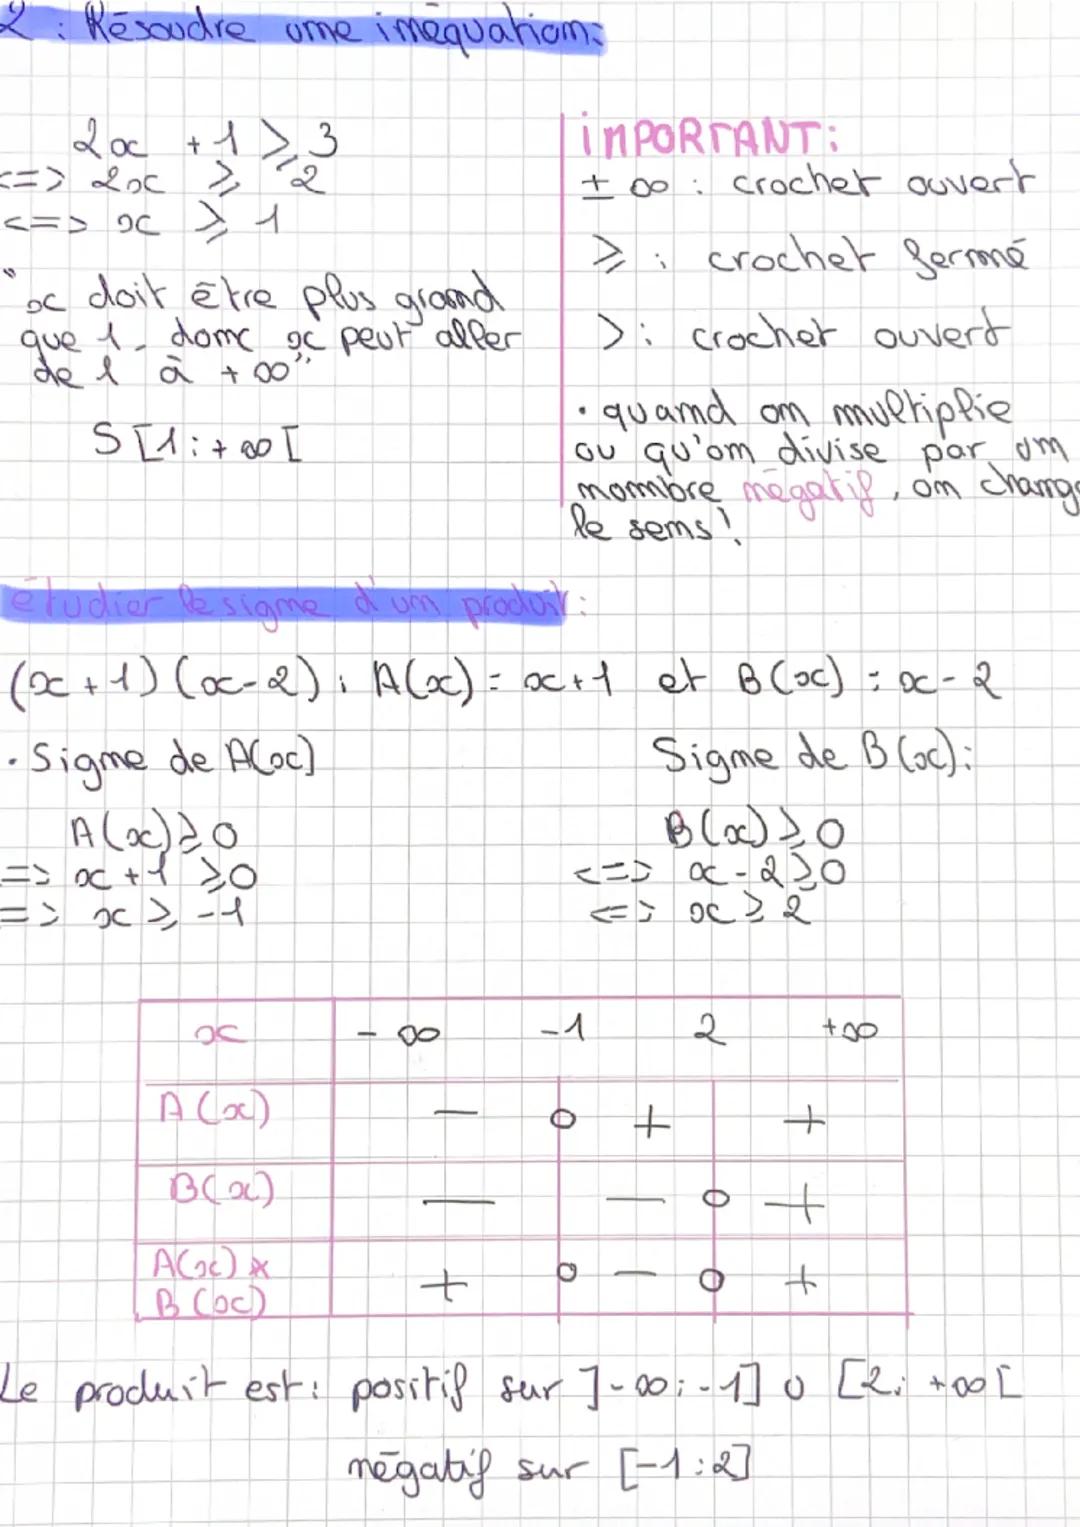 2 : Résoudre une inéquation:
2x + 1 ⩾ 3
<=> 2x ⩾ 2
<=> x ⩾ 1
"x doit être plus grand
que 1, donc x peut aller
de 1 à +∞"
S [1; +∞ [
IMPORTANT:
± ∞ : crochet ouvert
⩾ : crochet fermé
> : crochet ouvert
• quand on multiplie
ou qu'on divise par un
nombre négatif, on change
le sens!
étudier le signe d'un produit :
(x+1)(x-2) : A(x) = x+1 et B(x) = x-2
• Signe de A(x)
A(x) ⩾ 0
=> x+1 ⩾ 0
=> x ⩾ -1
Signe de B(x):
B(x) ⩾ 0
<=> x-2 ⩾ 0
<=> x ⩾ 2
x -∞ -1 2 +∞
A(x) - 0 + +
B(x) - - 0 +
A(x) × + 0 - 0 +
B(x)
Le produit est : positif sur ]-∞; -1] ∪ [2; +∞ [
négatif sur [-1; 2]